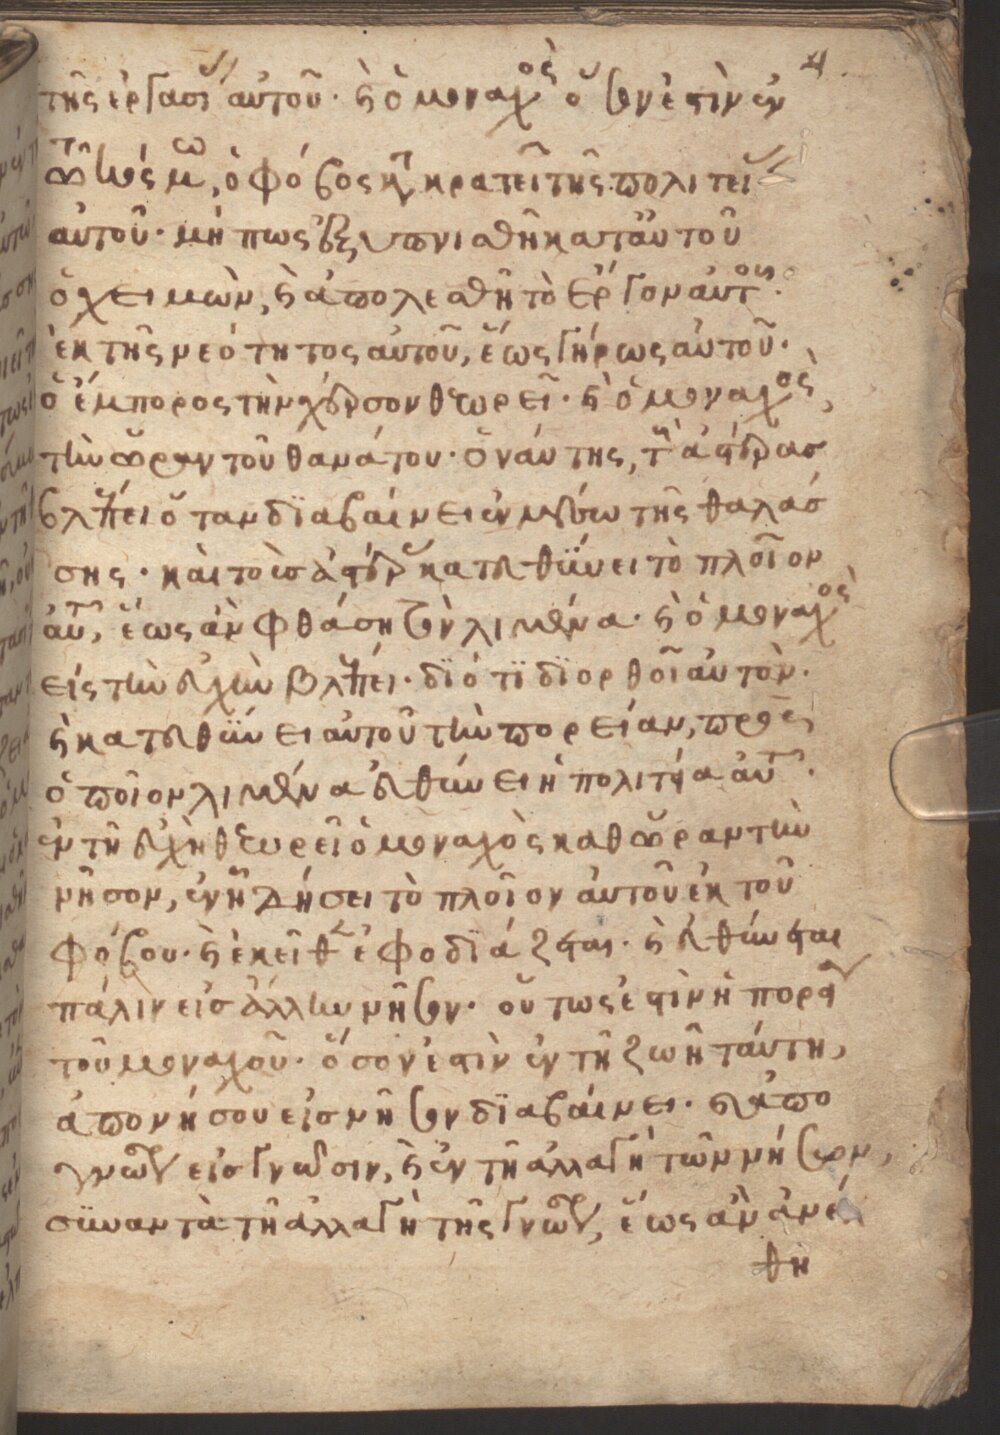 4
τῆς ἐργασί αὐτοῦ· ϗ ὁ μοναχὸς ὅσον ἐστὶν ἐν
ὁ φόβος κρατεῖ τῆς πολιτεί
αὐτοῦ· μήπως ἐξυπνισθῆ κατ' αὐτοῦ
ὁ χειμὼν, ϗ ἀπολεσθῆ τὸ ἔργον αὐτοῦ·
ἐκ τῆς νεότητος αὐτοῦ, ἕως γήρως αὐτοῦ·
ὁ ἔμπορος τὴν χέρσον θεωρεῖ· ϗ ὁ μοναχὸς,
τὴν ὥραν τοῦ θανάτου· ὁ ναύτης, τ ἀστέρας
βλέπει ὅταν διαβαίνει ἐν μέσω τῆς θαλάσ
σης· καὶ τοῖς ἀστρ κατευθύνει τὸ πλοῖον
αὐτ, ἕως ἂν φθάση σὸν λιμένα· ϗ ὁ μοναχὸς
εἰς τὴν εὐχὴν βλέπει· διότι διορθοῖ αὐτὸν·
ϗ κατευθύνει αὐτοῦ τὴν πορείαν, πρὸς
ὁποῖον λιμένα εὐθύνει ἡ πολιτεία αὐτ·
ἐν τῆ εὐχῆ θεωρεῖ ὁ μοναχὸς καθ' ὥραν τὴν
νῆσον, ἐν ἧ δήσει τὸ πλοῖον αὐτοῦ ἐκ τοῦ
φόβου· ϗ ἐκεῖθεν ἐφοδιάζεται· ϗ εὐθύνεται
πάλιν εἰς ἄλλην νῆσον· οὕτως ἐστὶν ἡ πορεία
τοῦ μοναχοῦ· ὅσον ἐστὶν ἐν τῆ ζωῆ ταύτη,
ἀπὸ νήσου εἰς νῆσον διαβαίνει· ϗ ἀπὸ
γνώσ εἰς γνῶσιν, ϗ ἐν τῆ ἀλλαγῆ τῶν νήσων,
συναντὰ τῆ ἀλλαγῆ τῆς γνώσ, ἕως ἂν ἀνέλ
θη